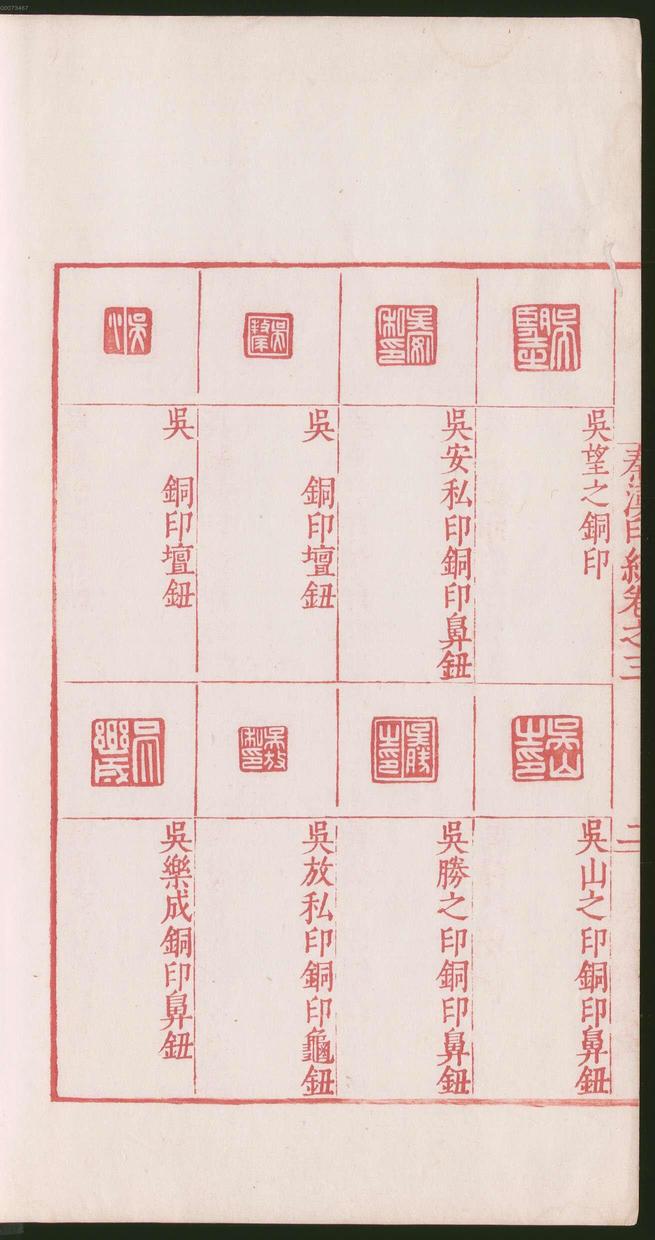 00073467
秦漢印統卷之三
二
吳望之銅印
吳安私印銅印鼻鈕
吳　銅印壇鈕
吳　銅印壇鈕
吳山之印銅印鼻鈕
吳勝之印銅印鼻鈕
吳放私印銅印龜鈕
吳樂成銅印鼻鈕